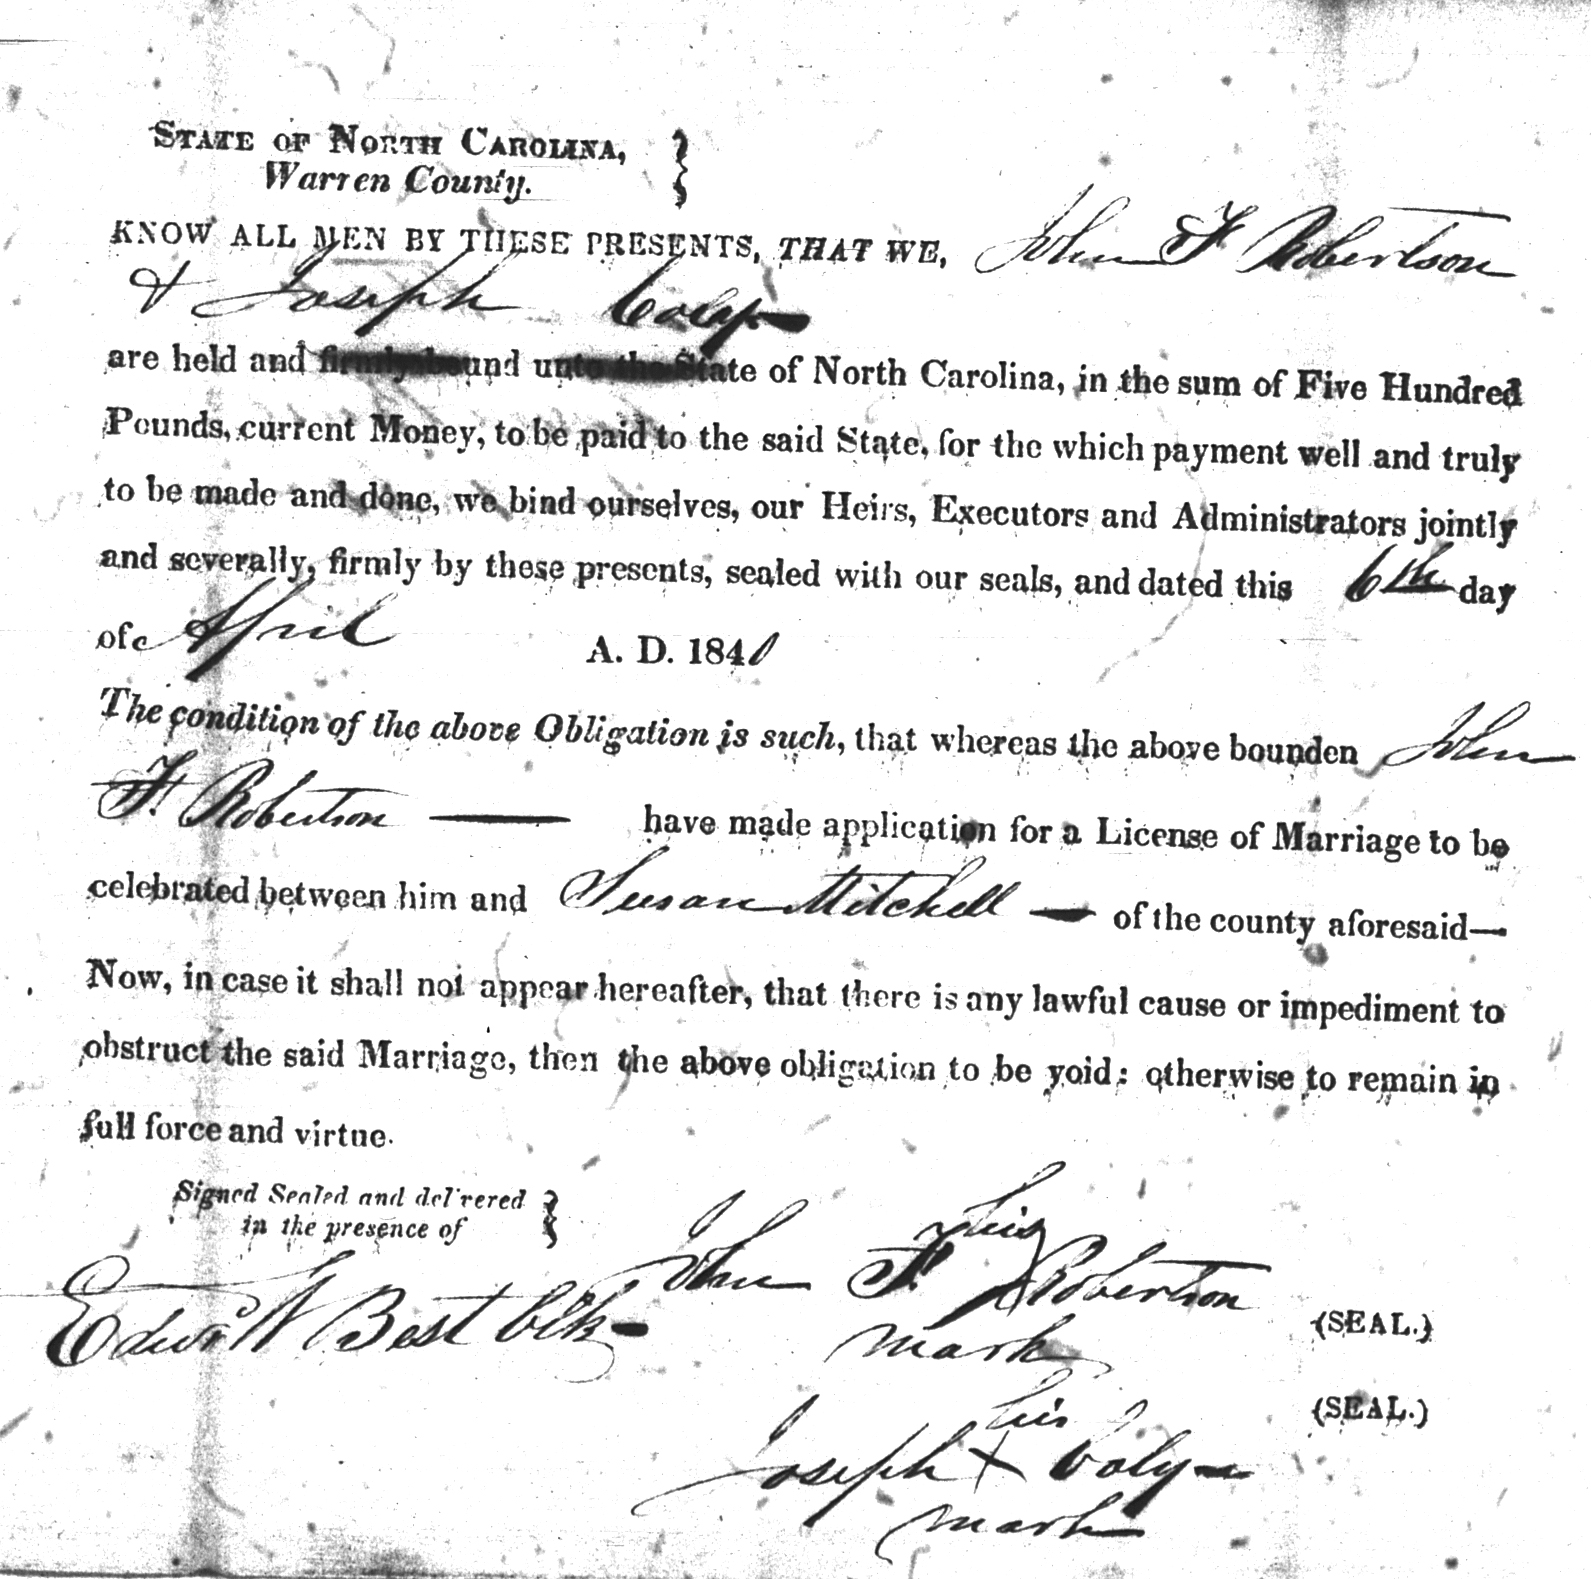 STATE OF NORTH CAROLINA,
Warren County.
KNOW ALL MEN BY THESE PRESENTS, THAT WE, John F Robertson
& Joseph Coly
are held and firmly bound unto the State of North Carolina, in the sum of Five Hundred
Pounds, current Money, to be paid to the said State, for the which payment well and truly
to be made and done, we bind ourselves, our Heirs, Executors and Administrators jointly
and severally, firmly by these presents, sealed with our seals, and dated this 6th day
of April A. D. 184
The condition of the above Obligation is such, that whereas the above bounden John
F. Robertson have made application for a License of Marriage to be
celebrated between him and Susan Mitchell — of the county aforesaid—
Now, in case it shall not appear hereafter, that there is any lawful cause or impediment to
obstruct the said Marriage, then the above obligation to be void: otherwise to remain in
full force and virtue.
Signed Sealed and delivered
in the presence of
his
John F. X Robertson (SEAL.)
mark
Edwd W Best Clk
his
(SEAL.)
Joseph X Coly
mark